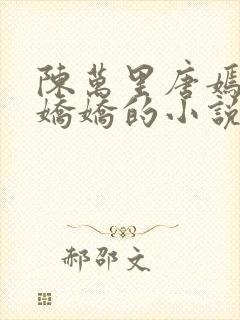 陳萬里唐嫣
嬌嬌的小說
郝邵文